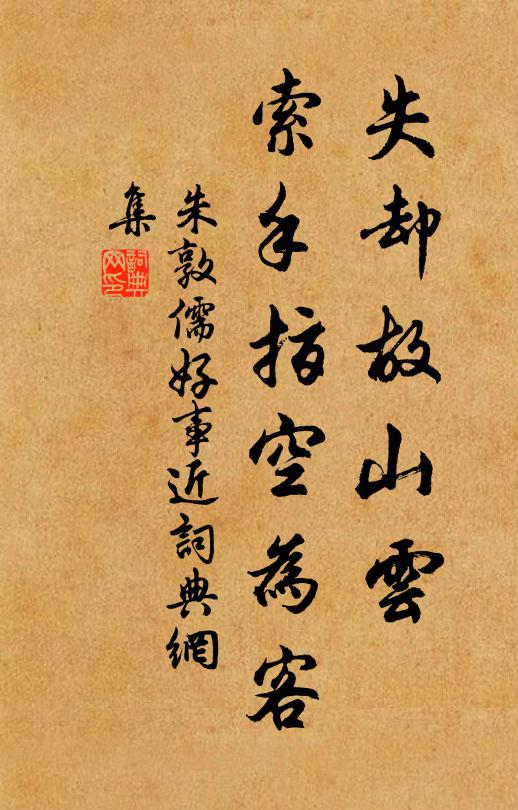 失却故山雲
索手指空為客
朱敦儒好事近詞典網
集
詞典
网印